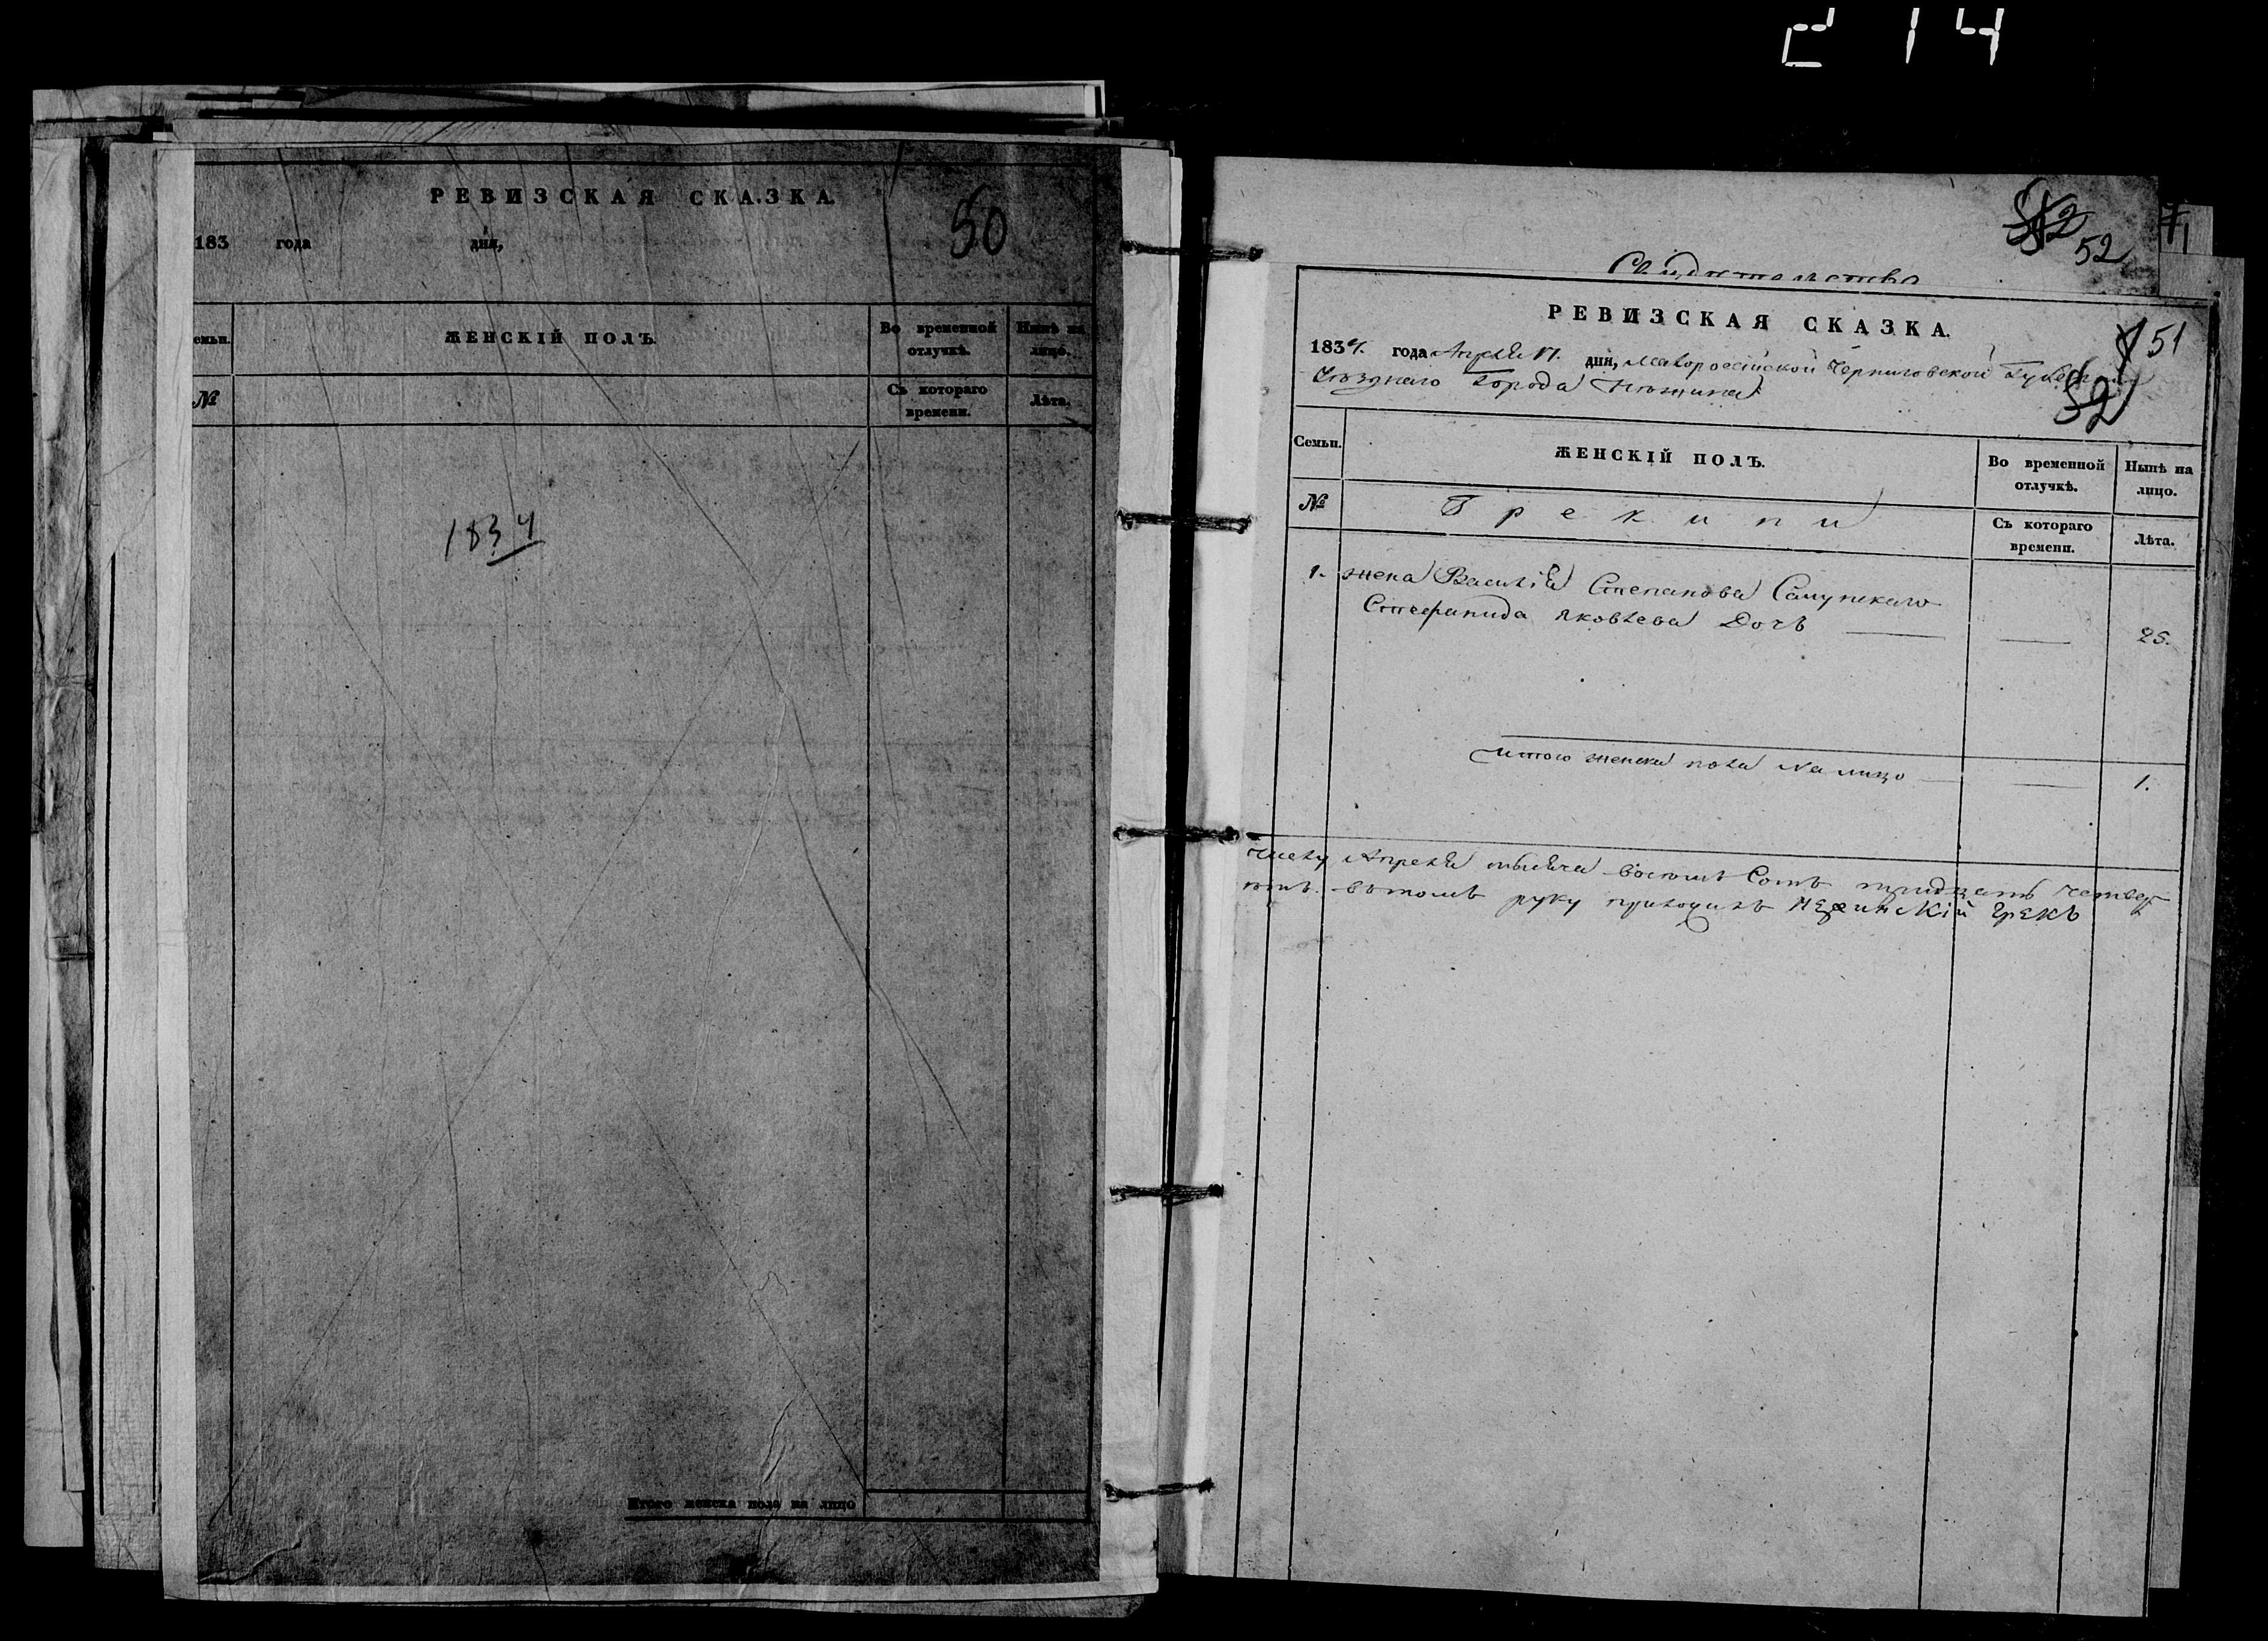 214
РЕВИЗСКАЯ СКАЗКА.
50
183 года дня,
емьи.
ЖЕНСКІЙ ПОЛЪ.
Во временной отлучкѣ.
Нынѣ на лицо.
№
Съ котораго времени.
Лѣта.
1834
Итого женска пола на лицо
52
52
Свидетельство
РЕВИЗСКАЯ СКАЗКА.
51
1834. года Апреля 17. дня, Малороссійской Черниговской Губерніи
52
Уезднаго Города Нѣжина
Семьи.
ЖЕНСКІЙ ПОЛЪ.
Во временной отлучкѣ.
Нынѣ на лицо.
№
Грекини
Съ котораго времени.
Лѣта.
1. жена Василія Степанова
Стефанида Яковлева Дочь 25.
Итого женска пола на лицо 1.
числу Апреля тысяча восемь Сотъ тридцать четвер
въ томъ руку приложилъ Нежинскій Грекъ